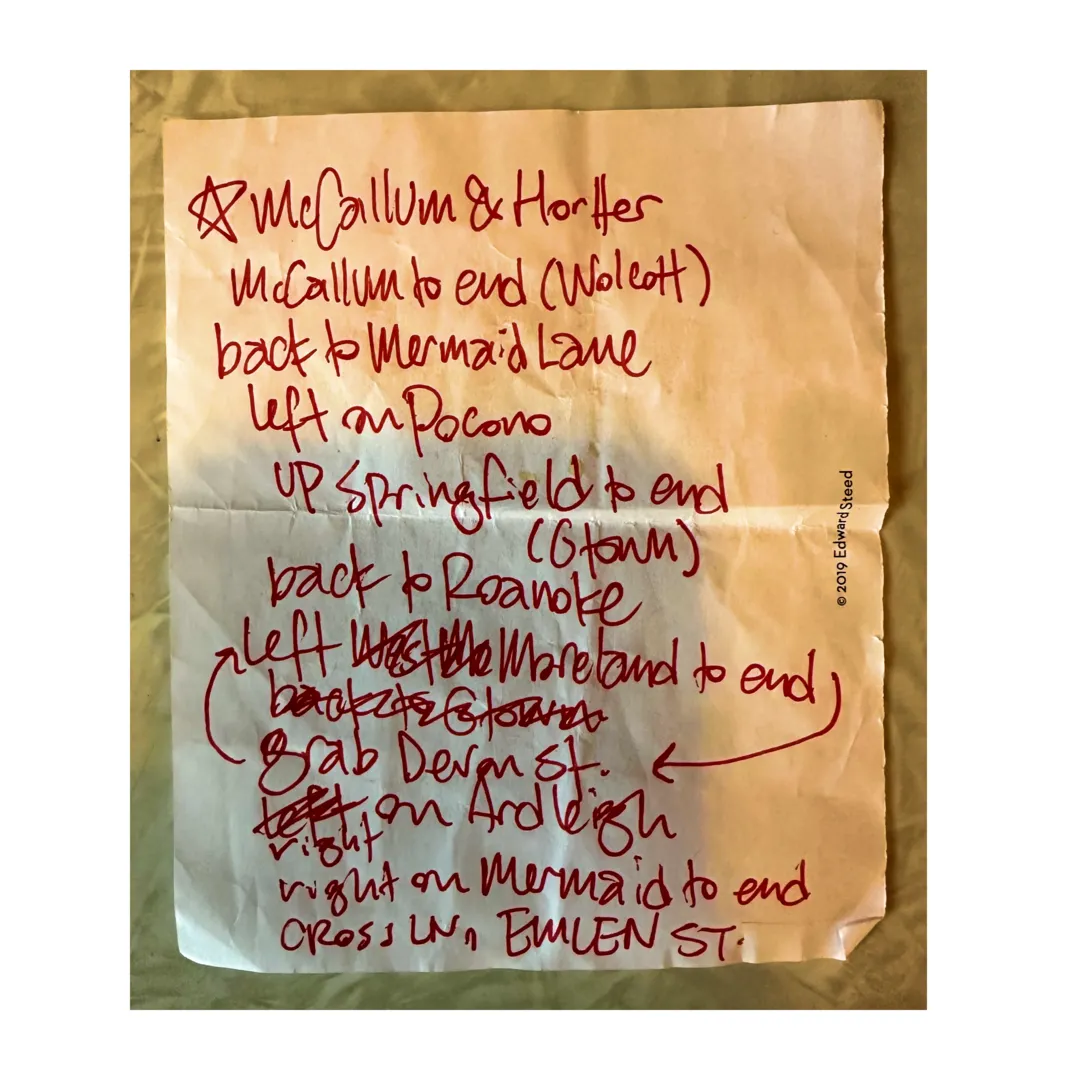 McCallum & Hortter
McCallum to end (Wolcott)
back to Mermaid Lane
left on Pocono
up Springfield to end
(Gtown)
back to Roanoke
left Moreland to end
back to Gtown
grab Devon st.
left on Ardleigh
right
right on Mermaid to end
CROSS LN, EMLEN ST.
© 2019 Edward Steed